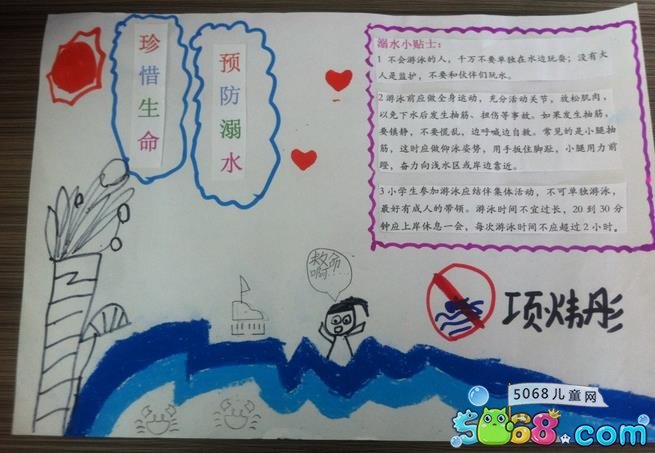 珍惜生命
预防溺水
溺水小贴士：
1 不会游泳的人，千万不要单独在水边玩耍；没有大
人是监护，不要和伙伴们玩水。
2 游泳前应做全身运动，充分活动关节，放松肌肉，
以免下水后发生抽筋、扭伤等事故。如果发生抽筋，
要镇静，不要慌乱，边呼喊边自救。常见的是小腿抽
筋，这时应做仰泳姿势，用手扳住脚趾，小腿用力前
蹬，奋力向浅水区或岸边靠近。
3 小学生参加游泳应结伴集体活动，不可单独游泳，
最好有成人的带领。游泳时间不宜过长，20 到 30 分
钟应上岸休息一会，每次游泳时间不应超过 2 小时。
救命
啊!...
项炜彤
5068儿童网
5068.com